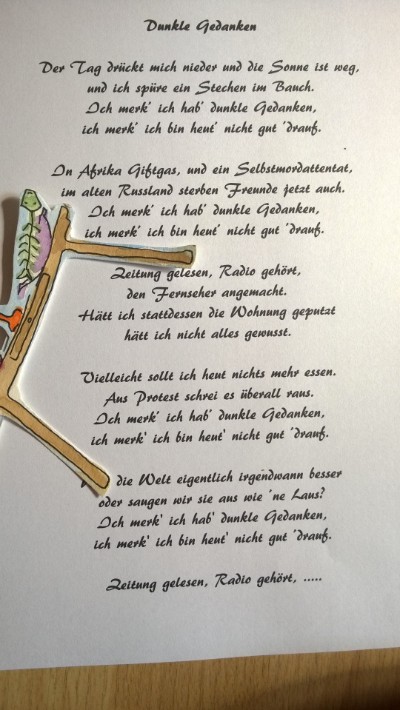 Dunkle Gedanken
Der Tag drückt mich nieder und die Sonne ist weg,
und ich spüre ein Stechen im Bauch.
Ich merk' ich hab' dunkle Gedanken,
ich merk' ich bin heut' nicht gut 'drauf.
In Afrika Giftgas, und ein Selbstmordattentat,
im alten Russland sterben Freunde jetzt auch.
Ich merk' ich hab' dunkle Gedanken,
ich merk' ich bin heut' nicht gut 'drauf.
Zeitung gelesen, Radio gehört,
den Fernseher angemacht.
Hätt ich stattdessen die Wohnung geputzt
hätt ich nicht alles gewusst.
Vielleicht sollt ich heut nichts mehr essen.
Aus Protest schrei es überall raus.
Ich merk' ich hab' dunkle Gedanken,
ich merk' ich bin heut' nicht gut 'drauf.
die Welt eigentlich irgendwann besser
oder saugen wir sie aus wie 'ne Laus?
Ich merk' ich hab' dunkle Gedanken,
ich merk' ich bin heut' nicht gut 'drauf.
Zeitung gelesen, Radio gehört, .....